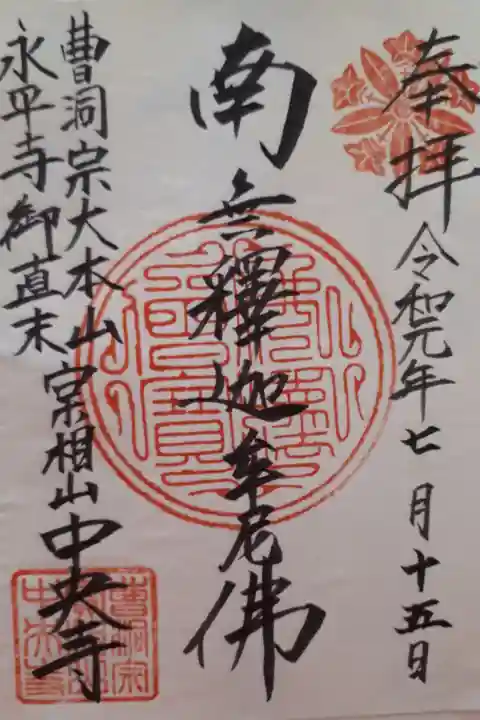 奉拝
令和元年七月十五日
南無釋迦牟尼佛
曹洞宗大本山
永平寺御直末
宗相山中央寺
曹洞宗
中央寺